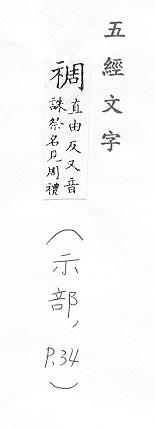 五經文字
禂
直由反又音
誅祭名見周禮
(示部, P.34)